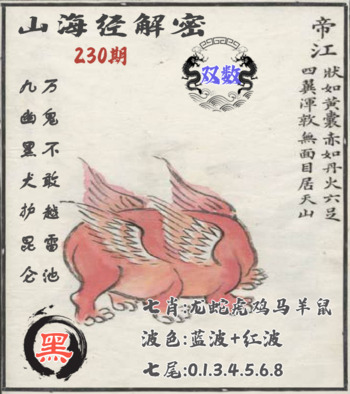 山海经解密
230期
双数
帝江
狀如黃囊赤如丹火六足
四翼渾敦無面目居天山
万鬼不敢越雷池
九幽黑犬护昆仑
黑
七肖:龙蛇虎鸡马羊鼠
波色:蓝波+红波
七尾:0.1.3.4.5.6.8